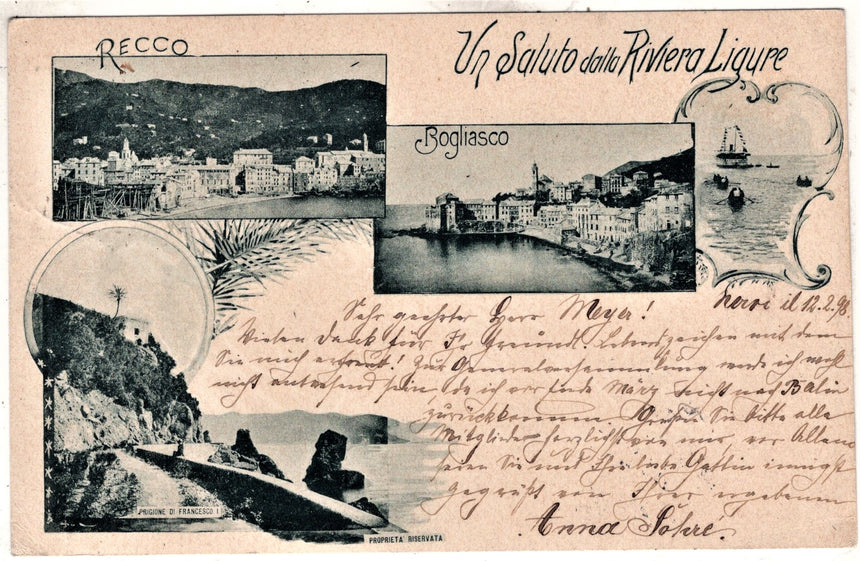 RECCO
Un Saluto dalla Riviera Ligure
Bogliasco
Nervi il 12.2.98
Sehr geehrter Herr Meyer!
Vielen Dank für Ihr Lebenszeichen mit dem
Sie mich erfreut! Zur Generalversammlung werde ich wohl
nicht anwesend sein, da ich vor Ende März nicht nach Berlin
zurückkomme. Grüßen Sie bitte alle
Mitglieder herzlichst von mir, vor Allem
seien Sie und Ihre liebe Gattin innigst
gegrüßt von Ihrer ergebenen
Anna
PRIGIONE DI FRANCESCO I
PROPRIETÀ RISERVATA